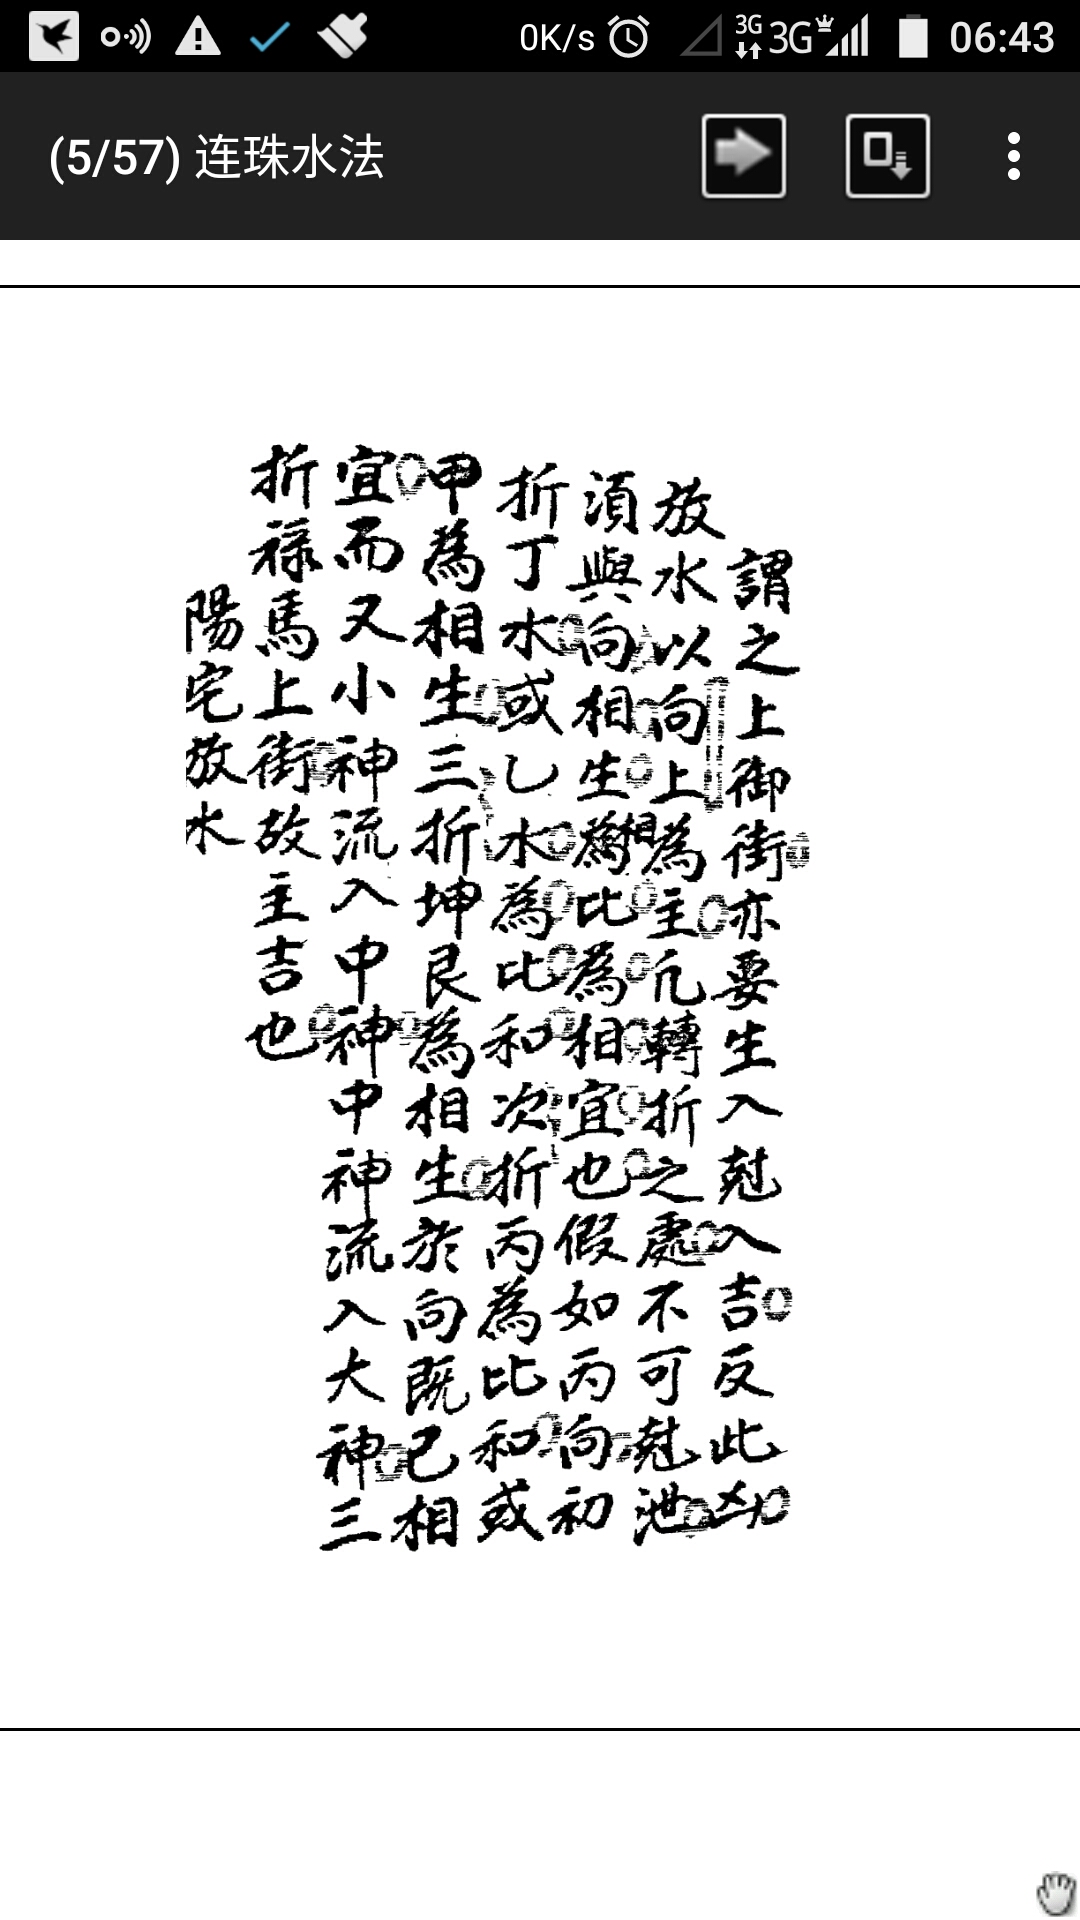 0K/s 3G 3G 06:43
(5/57) 连珠水法
謂之上御街亦要生入尅入吉反此凶
放水以向上為主凢轉折之處不可尅泄
須與向相生為比為相宜也假如丙向初
折丁水或乙水為比和次折丙為比和或
甲為相生三折坤艮為相生於向既已相
宜而又小神流入中神中神流入大神三
折祿馬上街故主吉也
陽宅放水